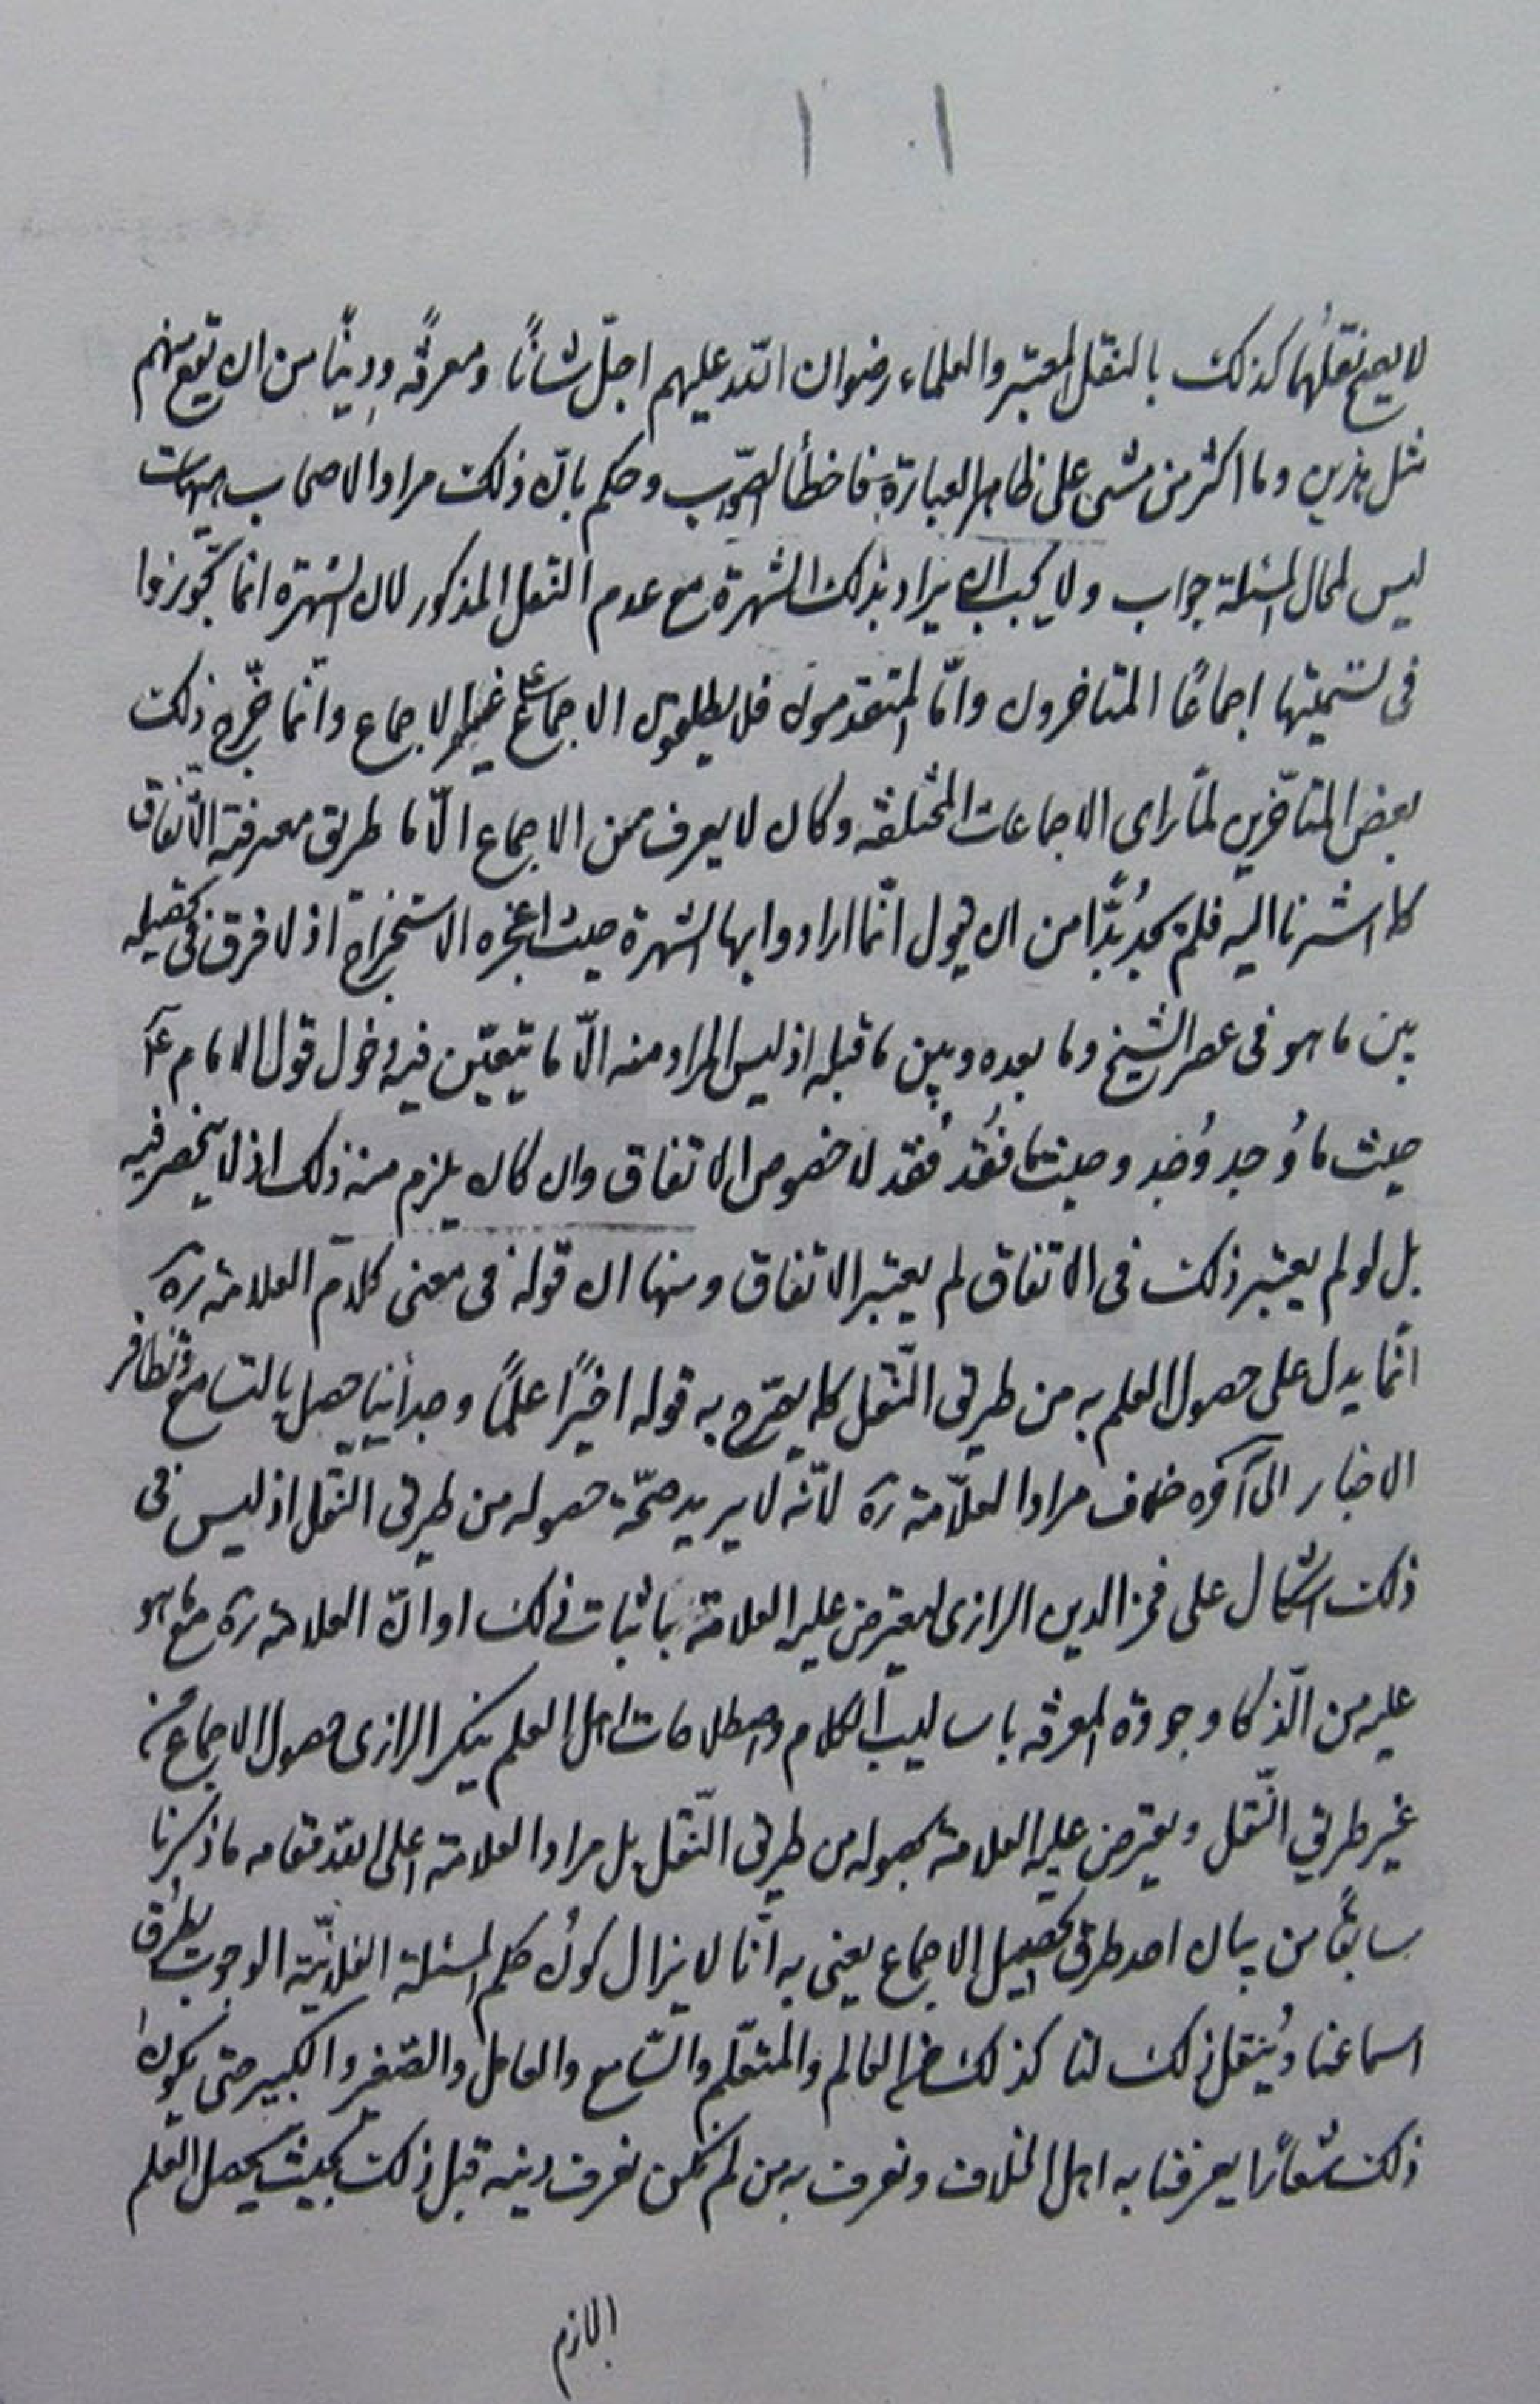 ١٠١
لا يصح نقلُهما كذلك بالنقل المعتبر والعلماء رضوان اللّه عليهم اجلّ شانًا ومعرفةً ودينًا من ان تقع منهم
مثل هذين وما اكثر من مشى على ظاهر العبارة فاخطأ الصّواب وحكم بانّ ذلك مراد الاصحاب هيهات
ليس لمحال المسئلة جواب ولا يجب ان يراد بذلك الشهرة مع عدم النقل المذكور لان الشهرة انما تجّوزوا
فى تسميتها اجماعًا المتاخرون وامّا المتقدمون فلا يطلقون الاجماع على غير الاجماع وانّما خرّج ذلك
بعض المتاخّرين لمّا راى الاجماعات المختلفة وكان لا يعرف من الاجماع الّا ما طريق معرفته الاتّفاق
كما اشرنا اليه فلم يجد بُدًّا من ان يقول انّما ارادوا بها الشهرة حيث اعجزه الاستخراج اذ لا فرق فى تحصيله
بين ما هو فى عصر الشيخ وما بعده وبين ما قبله اذ ليس المراد منه الّا ما يتعيّن فيه دخول قول الامام عٓ
حيث ما وُجد وُجد وحيثما فُقد فُقد لا خصوص الاتفاق وان كان يلزم منه ذلك اذ لا ينحصر فيه
بل لو لم يعتبر ذلك فى الاتفاق لم يعتبر الاتفاق ومنها ان قوله فى معنى كلام العلامة رهٓ
انّما يدل على حصول العلم به من طريق النّقل كما يصّرح به قوله اخيرًا علمًا وجدانيا حصل بالتسامع وتظافر
الاخبار الى آخره خلاف مراد العلّامة رهٓ لانّه لا يريد صحّة حصوله من طريق النقل اذ ليس فى
ذلك اشكال على فخر الدين الرازى ليعترض عليه العلامة باثبات ذلك او انّ العلامة رهٓ مع ما هو
عليه من الذّكا وجودة المعرفة باساليب الكلام واصطلاحات اهل العلم ينكر الرازى حصول الاجماع من
غير طريق النّقل ويعترض عليه العلامة بحصوله من طريق النّقل بل مراد العلامة اعلى اللّه مقامه ما ذكرنا
سابقًا من بيان احد طرق تحصيل الاجماع يعنى به انّا لا يزال كونُ حكم المسئلة الفلانيّة الوجوب يطرُق
اسماعنا ويُنقل ذلك لنا كذلك من العالم والمتعّلم والسّامع والعامل والصّغير والكبير حتى يكون
ذلك شعارًا يعرفنا به اهل الخلاف ونعرف به من لم نكن نعرف دينه قبل ذلك بحيث يحصل العلم
الجازم